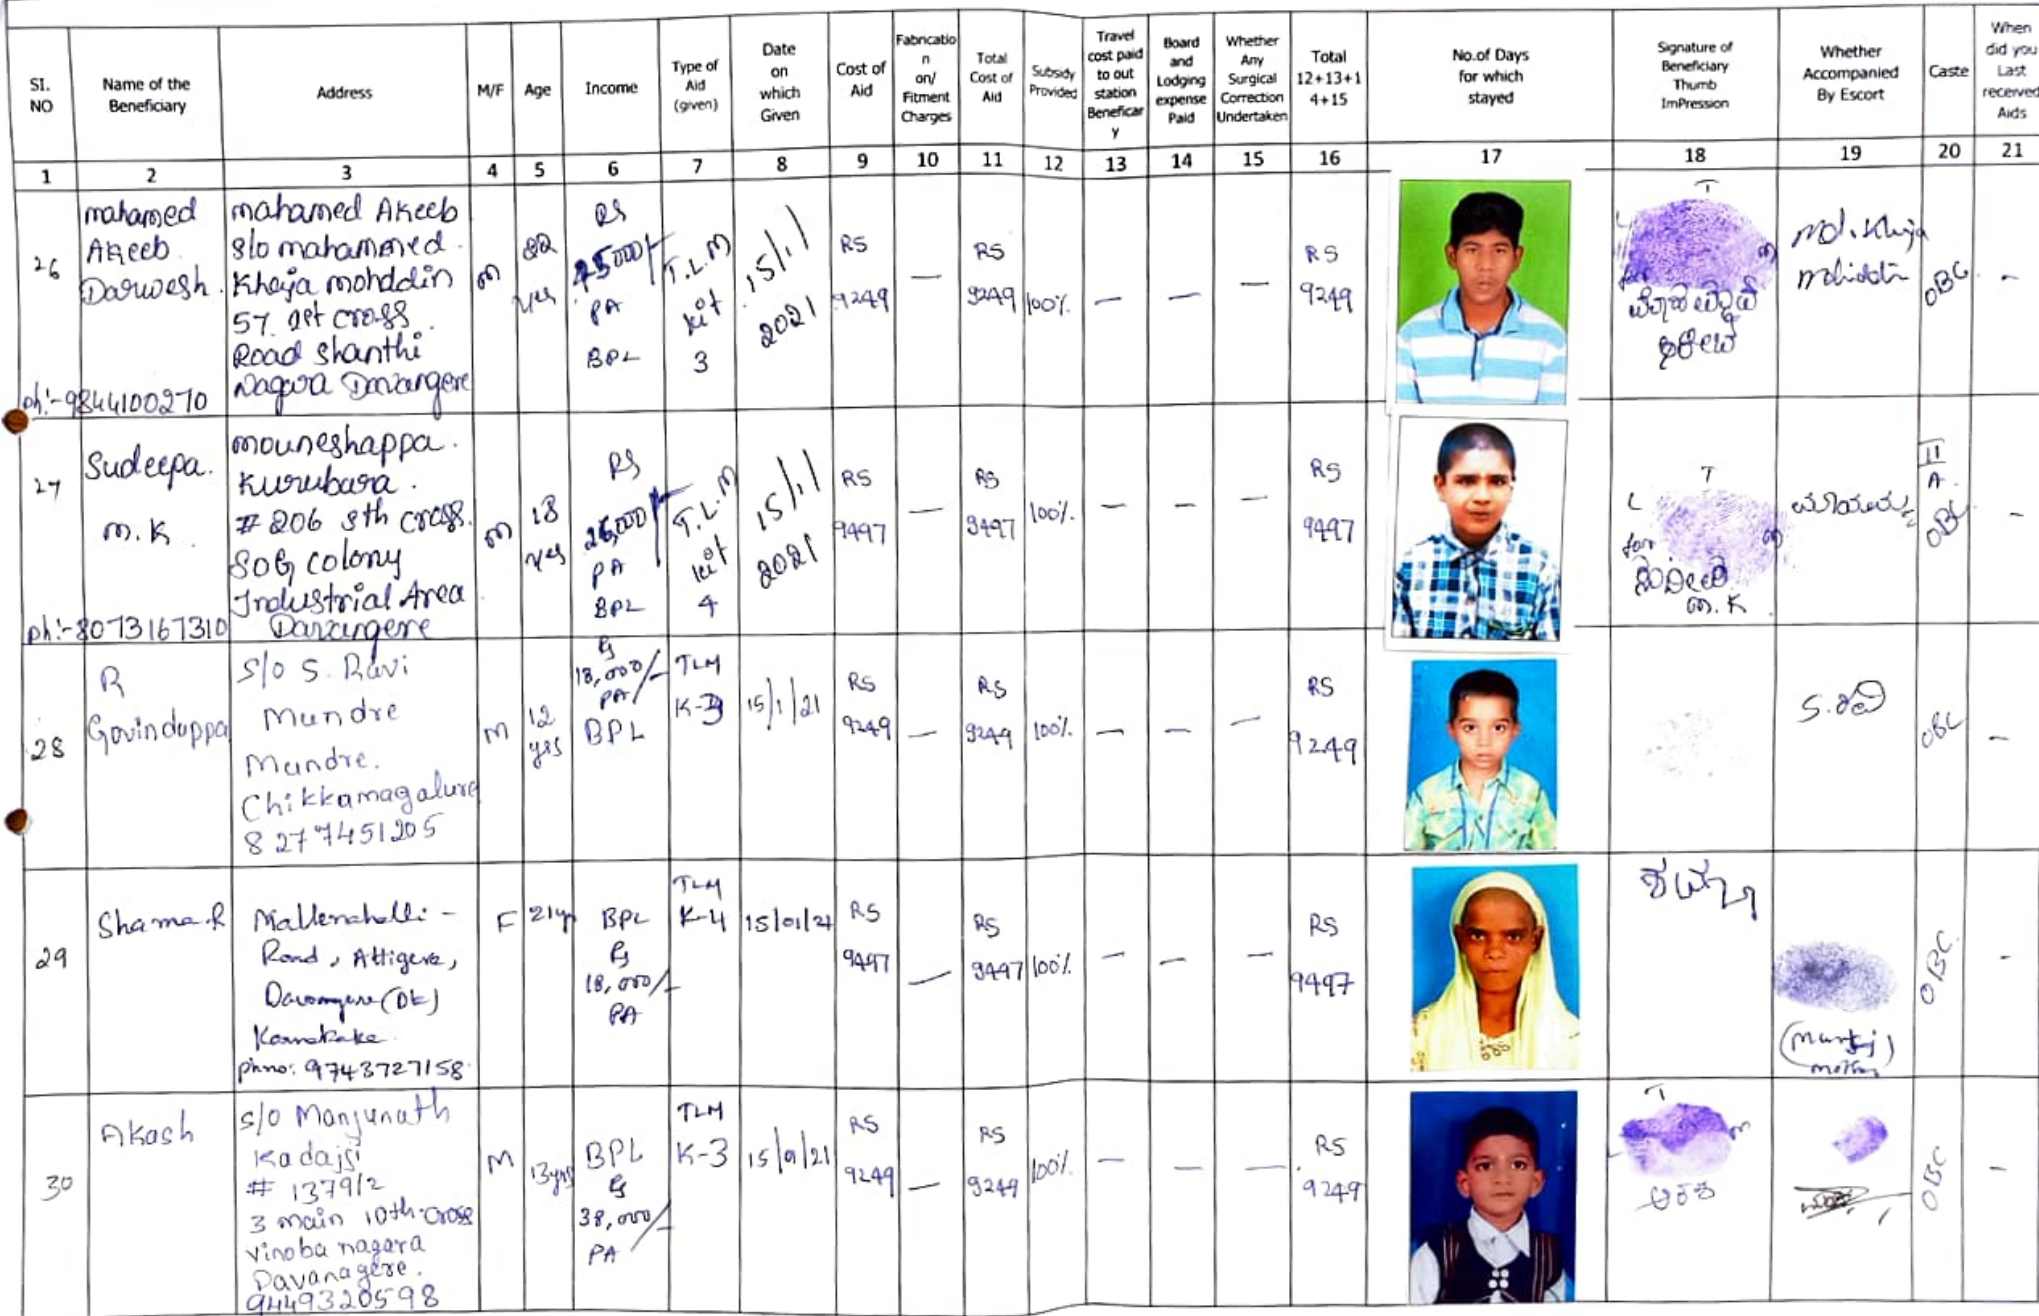 SI. NO
Name of the Beneficiary
Address
M/F
Age
Income
Type of Aid (given)
Date on which Given
Cost of Aid
Fabricatio n on/ Fitment Charges
Total Cost of Aid
Subsidy Provided
Travel cost paid to out station Beneficar y
Board and Lodging expense Paid
Whether Any Surgical Correction Undertaken
Total 12+13+1 4+15
No.of Days for which stayed
Signature of Beneficiary Thumb ImPression
Whether Accompanied By Escort
Caste
When did you Last recerved Aids
1 2 3 4 5 6 7 8 9 10 11 12 13 14 15 16 17 18 19 20 21
26
mahamed
Akeeb
Darwesh.
ph:-9844100270
mahamed Akeeb
s/o mahammed
Khaja mohddin
57. 1st cross
Road Shanthi
Nagara Davangere
M
22
yes
RS
PA
BPL
T.L.M
kit
3
15/1/
2021
RS
9249
—
RS
9249
100%
—
—
—
RS
9249
T
L
Md. Khaja
OBC
-
27
Sudeepa.
M.K.
ph:-8073167310
mouneshappa.
Kurubara.
# 206 8th cross.
SOG colony
Industrial Area
Davangere
M
18
yes
RS
26,000/-
PA
BPL
T.L.M
kit
4
15/1/
2021
RS
9497
—
RS
9497
100%
—
—
—
RS
9497
T
L
M.K
II
A.
OBC
-
28
R
Govinduppa
S/o S. Ravi
Mundre
Mundre.
Chikkamagalure
8277451205
M
12
yrs
Rs
18,000/-
PA
BPL
TLM
K-3
15/1/21
RS
9249
—
RS
9249
100%
—
—
—
RS
9249
S.ರವಿ
OBC
-
29
Shama.R
Mallenahalli -
Road, Attigere,
Davangere (Dt)
Karnataka
phno: 9743727158
F
21yr
BPL
Rs
18,000/-
PA
TLM
K-4
15/01/21
RS
9497
—
RS
9497
100%
—
—
—
RS
9497
OBC
-
30
Akash
S/o Manjunath
Kadajji
# 1379/2
3 main 10th cross
Vinoba nagara
Davanagere.
9449320598
M
13yrs
BPL
Rs
38,000/-
PA
TLM
K-3
RS
9249
—
RS
9249
100%
—
—
—
RS
9249
T
OBC
-